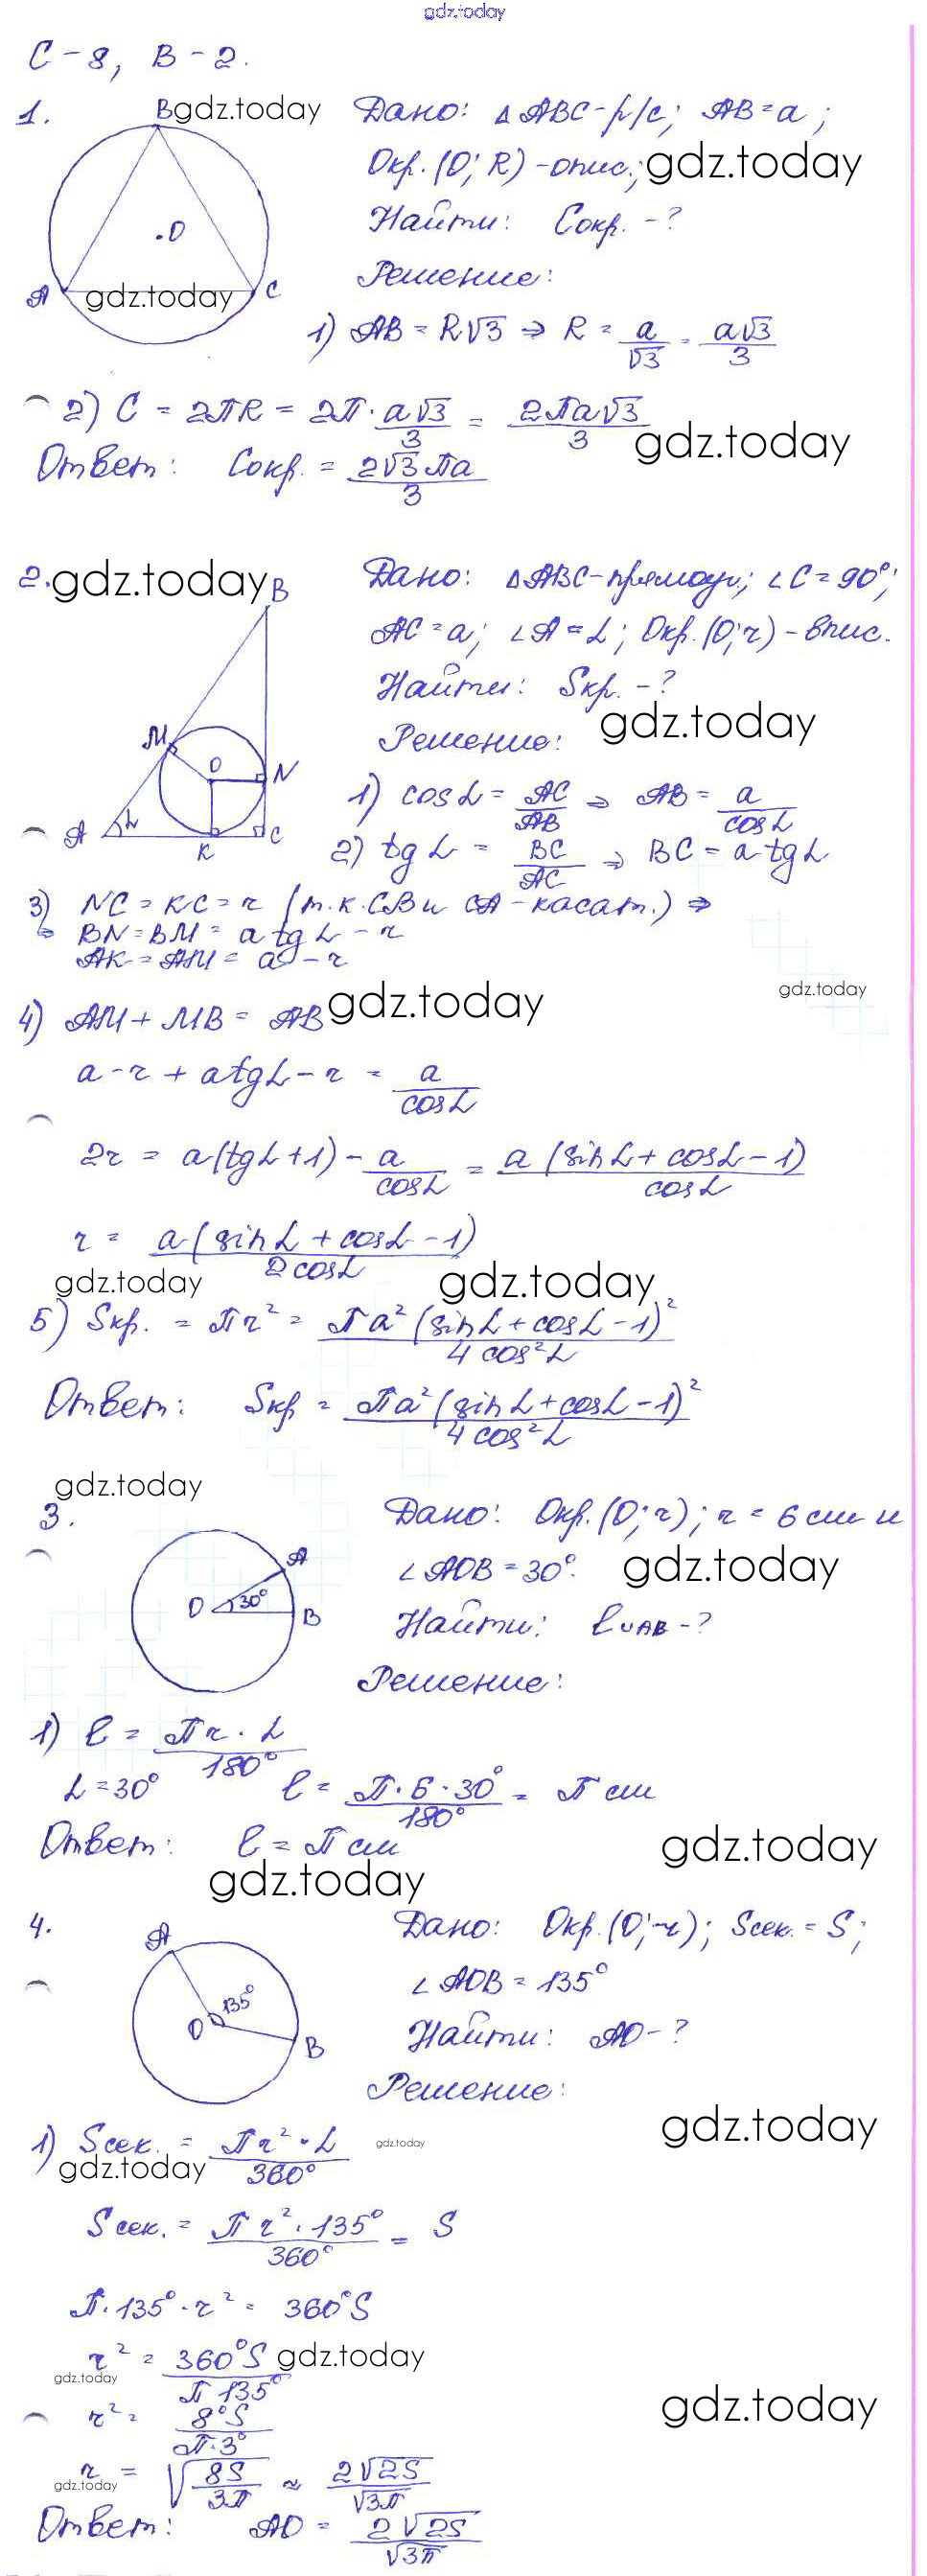 gdz.today
С-8, В-2.
1. B gdz.today Дано: △ABC-р/с; AB=a;
Окр.(O; R)-опис.; gdz.today
Найти: Cокр. -?
.O
Решение:
A gdz.today C
1) AB = R√3 ⇒ R = a/√3 = a√3/3
2) C = 2ПR = 2П · a√3/3 = 2Пa√3/3
gdz.today
Ответ: Cокр. = 2√3Пa/3
2. gdz.today B Дано: △ABC-прямоуг.; ∠C=90°;
AC=a; ∠A=L; Окр.(O;r)-впис.
Найти: Sкр. -?
gdz.today
M O N Решение:
1) cosL = AC/AB ⇒ AB = a/cosL
A L K C
2) tgL = BC/AC ⇒ BC = a tgL
3) NC = KC = r (т.к. CB и CA - касат.) ⇒
⇒ BN = BM = a tgL - r
AK = AM = a - r
gdz.today
4) AM + MB = AB gdz.today
a - r + atgL - r = a/cosL
2r = a(tgL+1) - a/cosL = a(sinL + cosL - 1)/cosL
r = a(sinL + cosL - 1)/2cosL
gdz.today gdz.today
5) Sкр. = Пr² = Пa²(sinL + cosL - 1)²/4cos²L
Ответ: Sкр = Пa²(sinL + cosL - 1)²/4cos²L
gdz.today
3. Дано: Окр.(O;r); r = 6 см и
A ∠AOB = 30°. gdz.today
O 30° B
Найти: l∪AB -?
Решение:
1) l = Пr · L/180°
L = 30° l = П·6·30°/180° = П см
Ответ: l = П см gdz.today
gdz.today
4. A Дано: Окр.(O;r); Sсек. = S;
∠AOB = 135°
135° O B
Найти: AO -?
Решение:
gdz.today
1) Sсек. = Пr² · L/360° gdz.today
gdz.today
Sсек. = Пr² · 135°/360° = S
П·135°·r² = 360°S
r² = 360°S/П 135° gdz.today
gdz.today
r² = 8°S/П·3° gdz.today
r = √8S/3П ≈ 2√2S/√3П
gdz.today
Ответ: AO = 2√2S/√3П